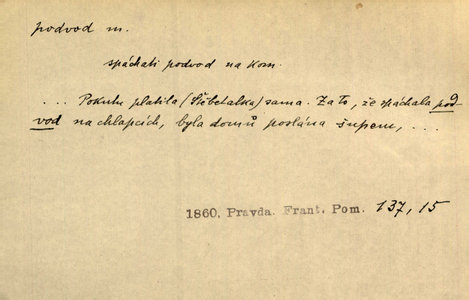 podvod m.
spáchati podvod na kom.
... Pokutu platila (Štěbetalka) sama. Za to, že spáchala pod-
vod na chlapcích, byla domů poslána šupem, ...
1860, Pravda. Frant. Pom. 137, 15